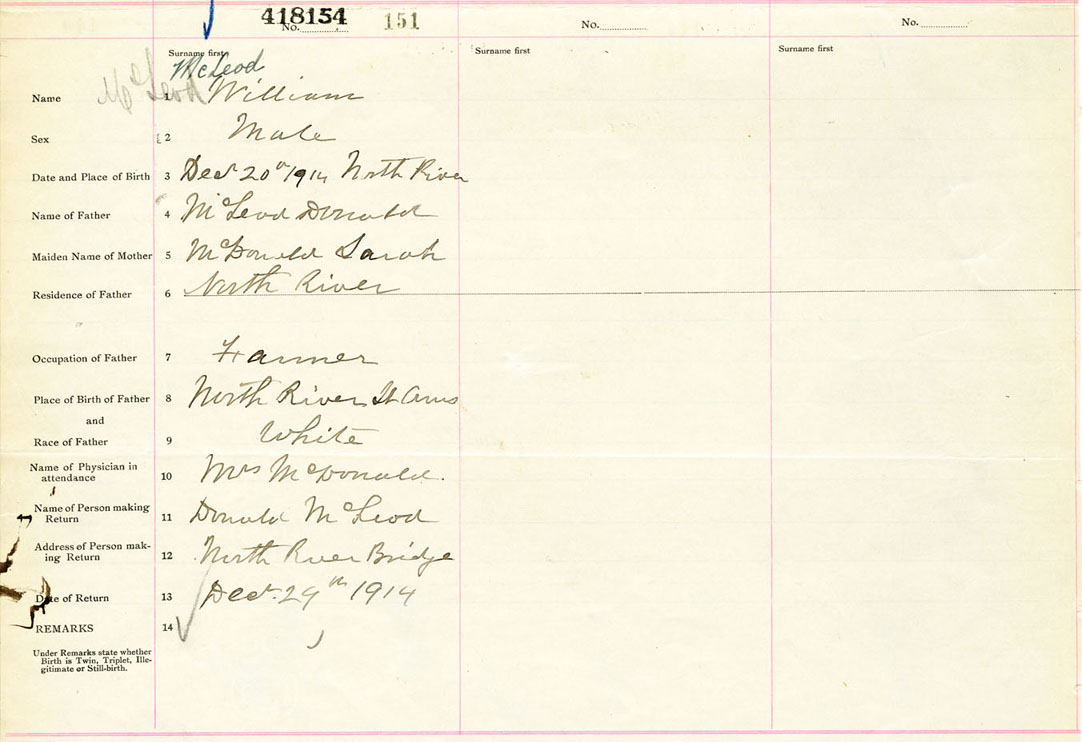 418154 151
No. No. No.
Surname first Surname first Surname first
McLeod
McLeod
Name 1 William
Sex 2 Male
Date and Place of Birth 3 Dec 20th 1914 North River
Name of Father 4 McLeod Donald
Maiden Name of Mother 5 McDonald Sarah
Residence of Father 6 North River
Occupation of Father 7 Farmer
Place of Birth of Father 8 North River St Anns
and
Race of Father 9 White
Name of Physician in
attendance 10 Mrs McDonald.
Name of Person making
Return 11 Donald McLeod
Address of Person mak-
ing Return 12 North River Bridge
Date of Return 13 Dec. 29th 1914
REMARKS 14
Under Remarks state whether
Birth is Twin, Triplet, Ille-
gitimate or Still-birth.